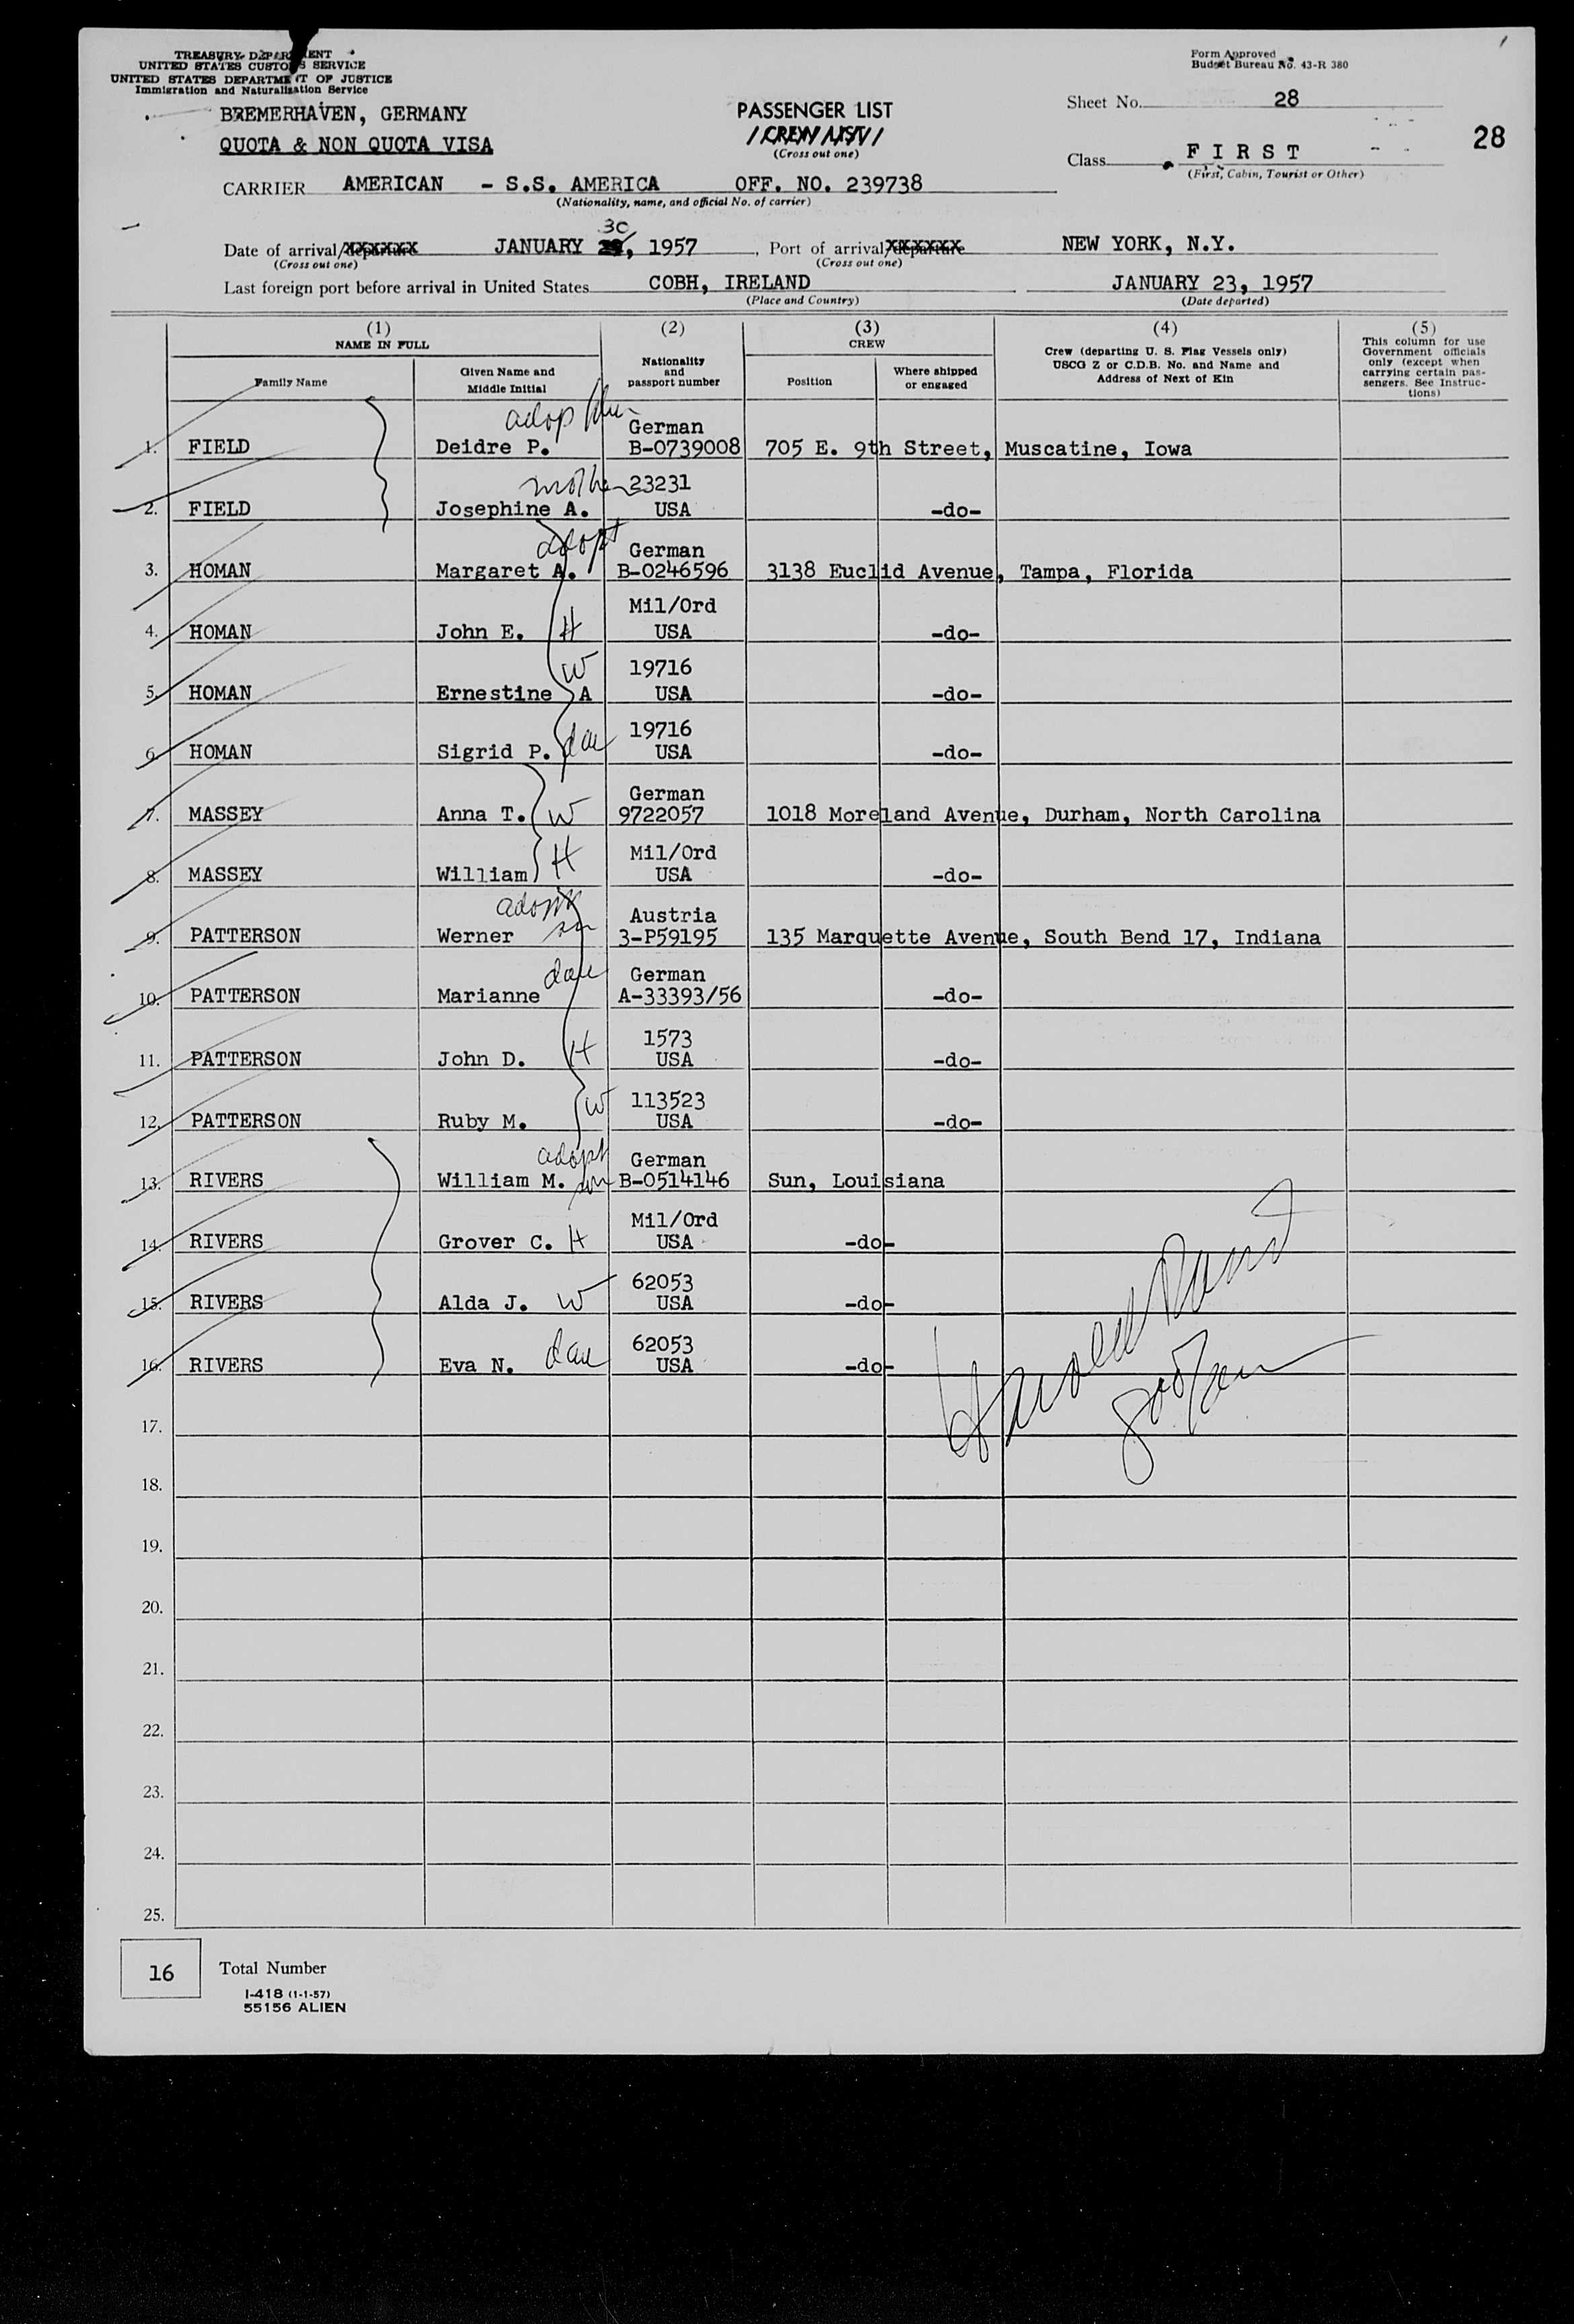 TREASURY DEPARTMENT
UNITED STATES CUSTOMS SERVICE
UNITED STATES DEPARTMENT OF JUSTICE
Immigration and Naturalization Service
Form Approved
Budget Bureau No. 43-R 380
BREMERHAVEN, GERMANY
QUOTA & NON QUOTA VISA
PASSENGER LIST
CREW LIST
(Cross out one)
Sheet No. 28
28
Class FIRST
(First, Cabin, Tourist or Other)
CARRIER AMERICAN - S.S. AMERICA OFF. NO. 239738
(Nationality, name, and official No. of carrier)
30
Date of arrival/departure JANUARY , 1957, Port of arrival/departure NEW YORK, N.Y.
(Cross out one) (Cross out one)
Last foreign port before arrival in United States COBH, IRELAND JANUARY 23, 1957
(Place and Country) (Date departed)
(1) NAME IN FULL
Family Name
Given Name and Middle Initial
(2) Nationality and passport number
(3) CREW
Position
Where shipped or engaged
(4) Crew (departing U. S. Flag Vessels only) USCG Z or C.D.B. No. and Name and Address of Next of Kin
(5) This column for use Government officials only (except when carrying certain passengers. See Instructions)
German
1. FIELD Deidre P. B-0739008 705 E. 9th Street, Muscatine, Iowa
mother 23231
2. FIELD Josephine A. USA -do-
adopt German
3. HOMAN Margaret A. B-0246596 3138 Euclid Avenue, Tampa, Florida
Mil/Ord
4. HOMAN John E. H USA -do-
W 19716
5. HOMAN Ernestine A USA -do-
19716
6. HOMAN Sigrid P. dau USA -do-
German
7. MASSEY Anna T. W 9722057 1018 Moreland Avenue, Durham, North Carolina
Mil/Ord
8. MASSEY William H USA -do-
adopt Austria
9. PATTERSON Werner son 3-P59195 135 Marquette Avenue, South Bend 17, Indiana
dau German
10. PATTERSON Marianne A-33393/56 -do-
1573
11. PATTERSON John D. H USA -do-
113523
12. PATTERSON Ruby M. W USA -do-
adopt German
13. RIVERS William M. son B-0514146 Sun, Louisiana
Mil/Ord
14. RIVERS Grover C. H USA -do-
62053
15. RIVERS Alda J. W USA -do-
62053
16. RIVERS Eva N. dau USA -do-
Harold
17.
18.
19.
20.
21.
22.
23.
24.
25.
16 Total Number
I-418 (1-1-57)
55156 ALIEN